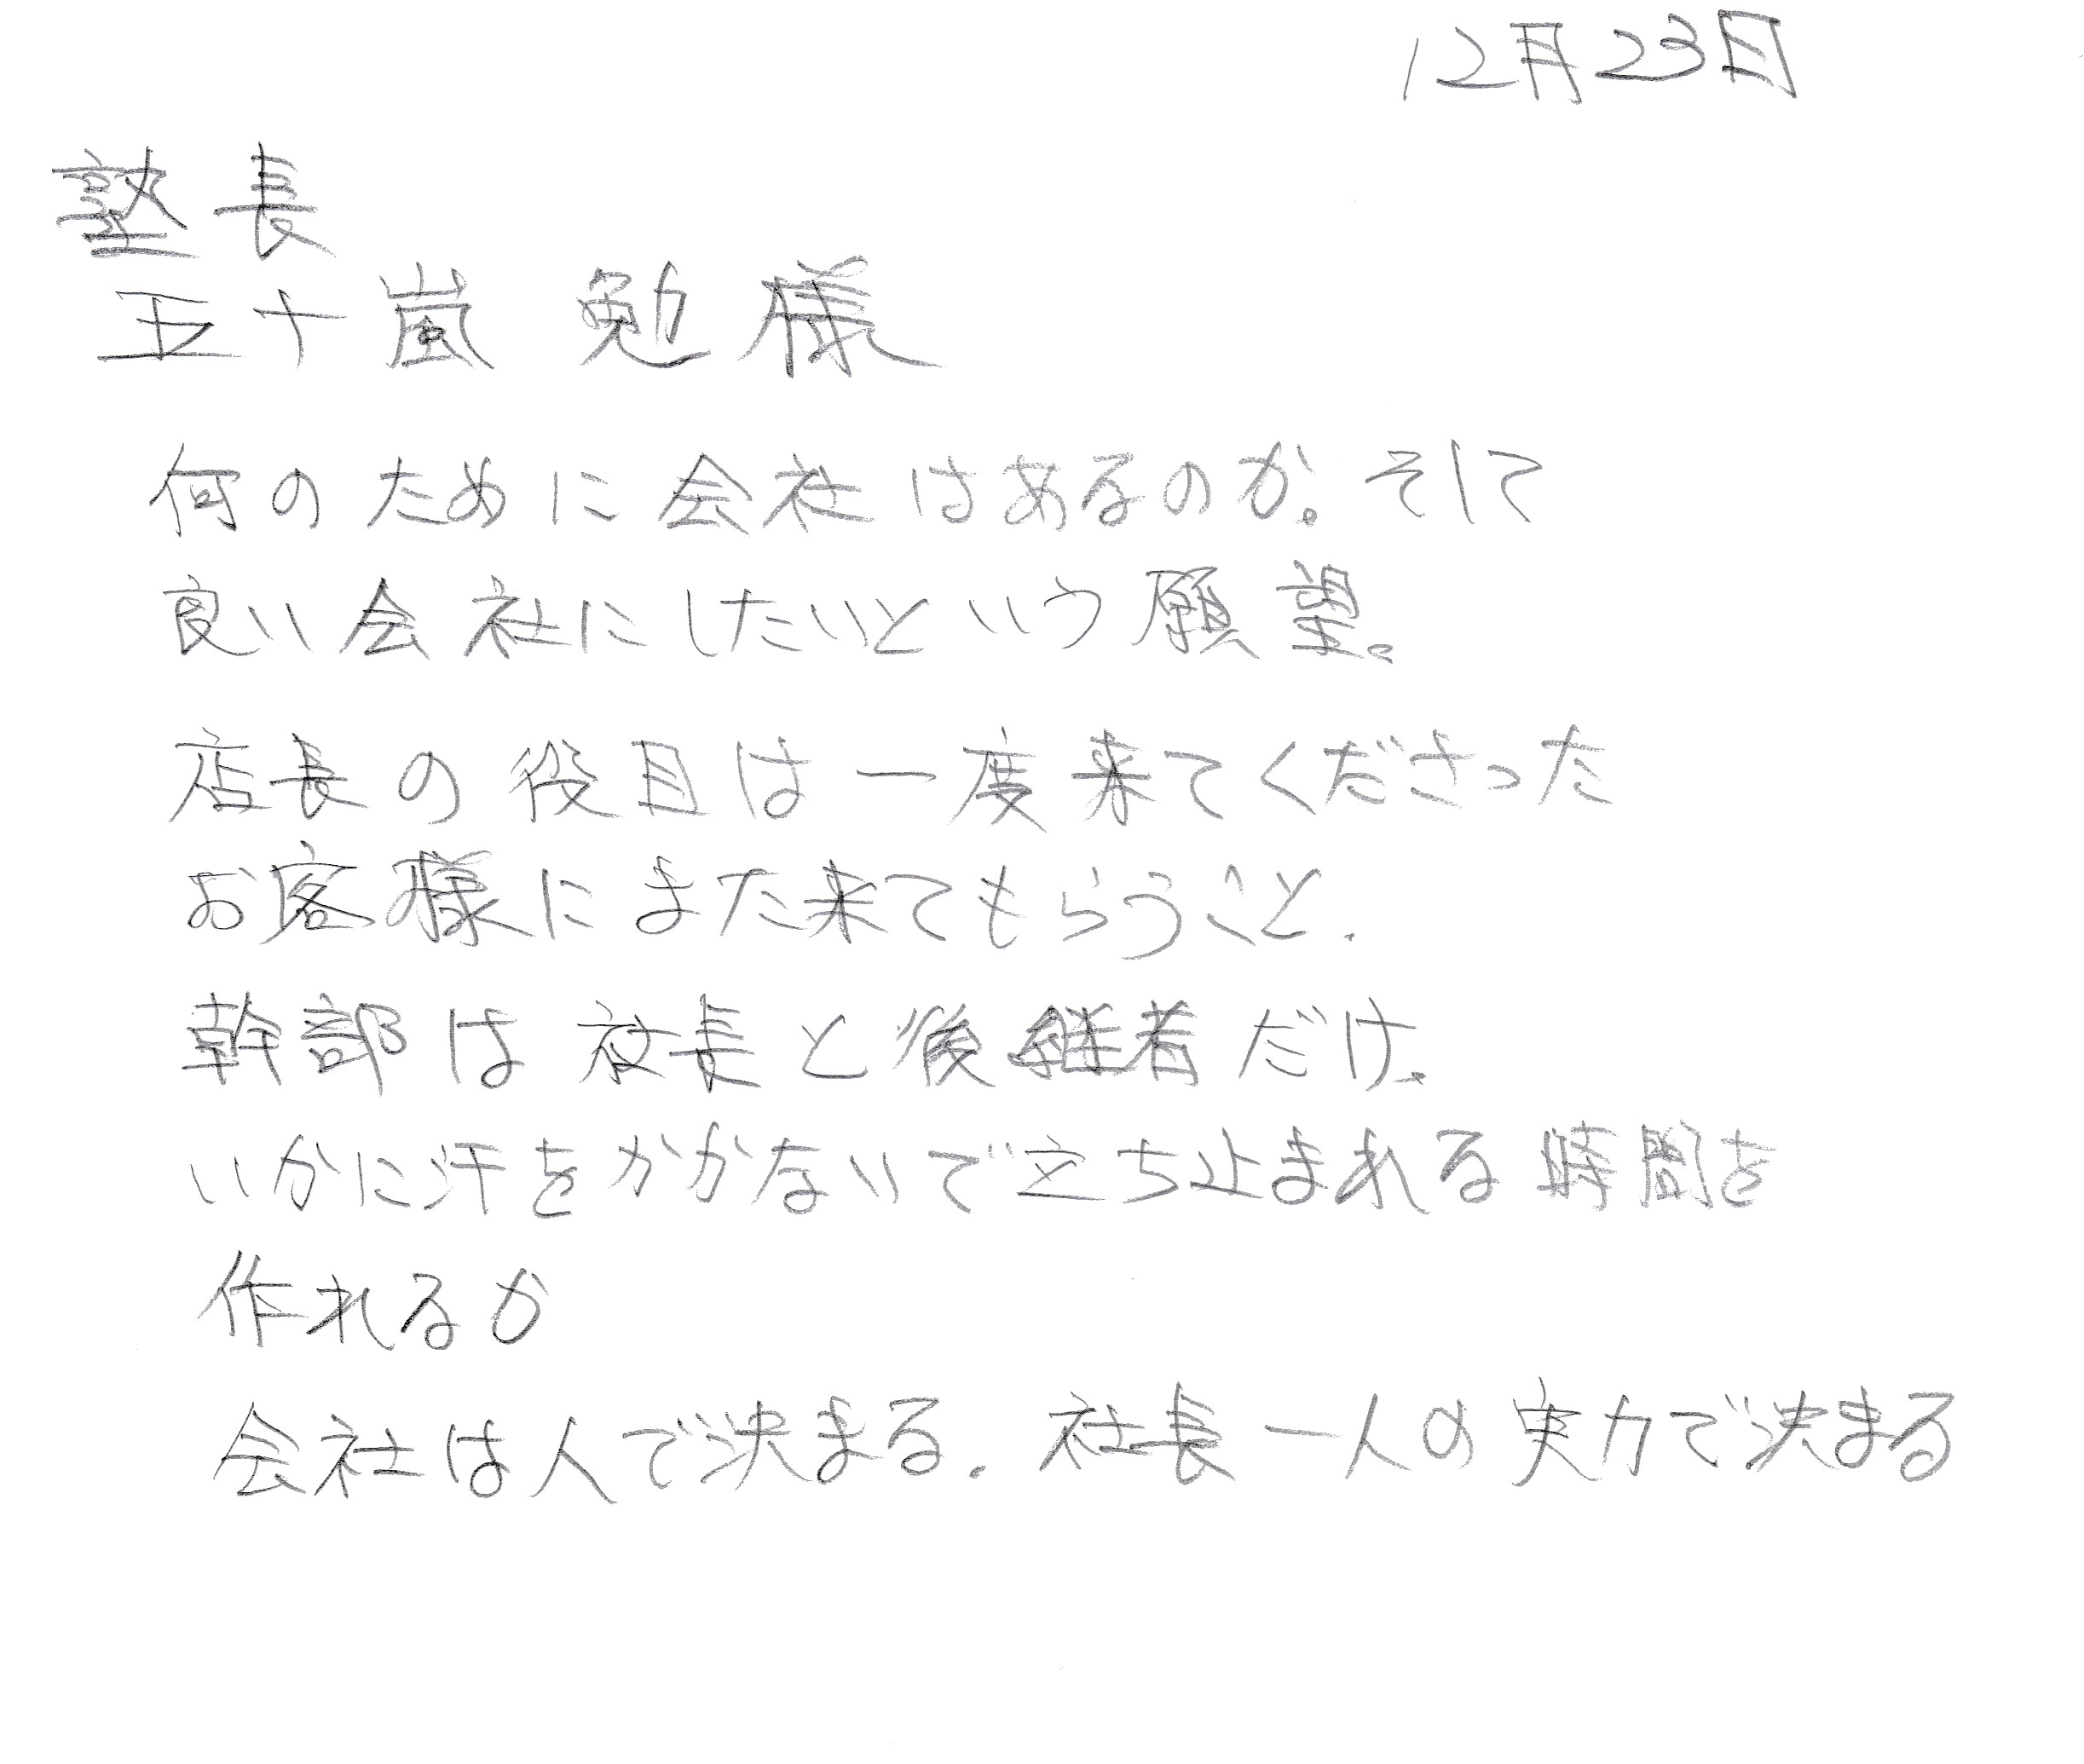 12月23日
塾長
五十嵐 勉様
何のために会社はあるのか。そして
良い会社にしたいという願望。
店長の役目は一度来てくださった
お客様にまた来てもらうこと.
幹部は社長と後継者だけ.
いかに汗をかかないで立ち止まれる時間を
作れるか
会社は人で決まる. 社長一人の実力で決まる